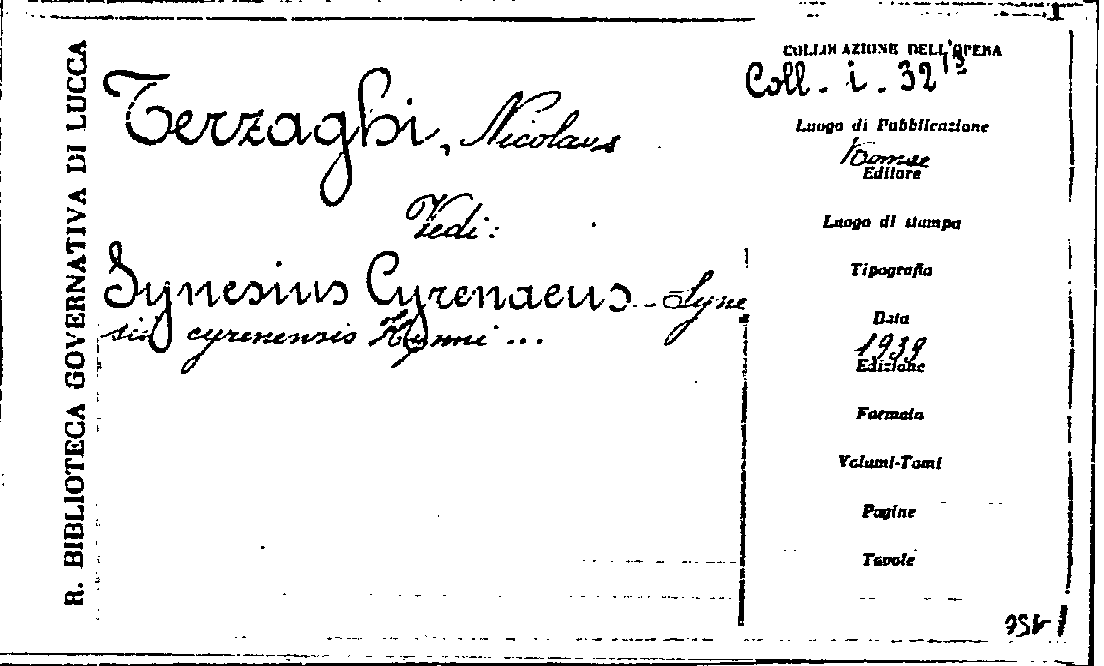 R. BIBLIOTECA GOVERNATIVA DI LUCCA
Terzaghi, Nicolaus
Vedi:
Synesius Cyrenaeus - Syne
sii cyrenensis Hymni ...
COLLOCAZIONE DELL'OPERA
Coll. i. 32
Luogo di Pubblicazione
Romae
Editore
Luogo di stampa
Tipografia
Data
1939
Edizione
Formato
Volumi-Tomi
Pagine
Tavole